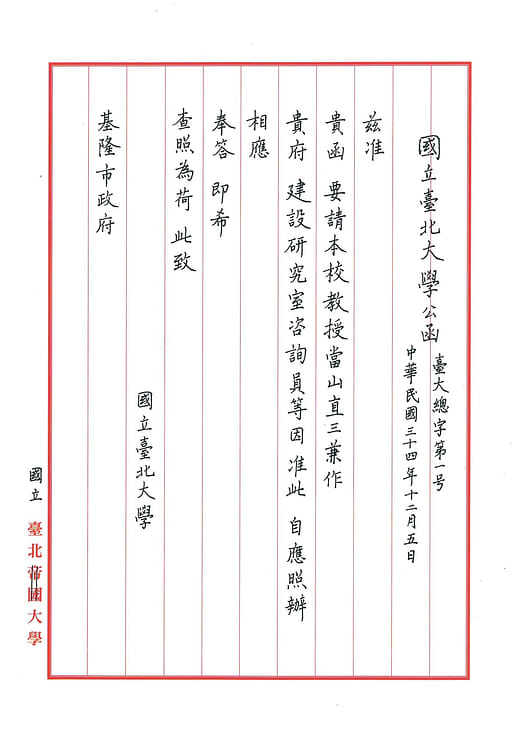 國立臺北大學公函
臺大總字第一号
中華民國三十四年十二月五日
茲准
貴函 要請本校教授當山直三兼作
貴府 建設研究室咨詢員等因 准此 自應照辦
相應
奉答 即希
查照為荷 此致
國立臺北大學
基隆市政府
國立
臺北帝國大學